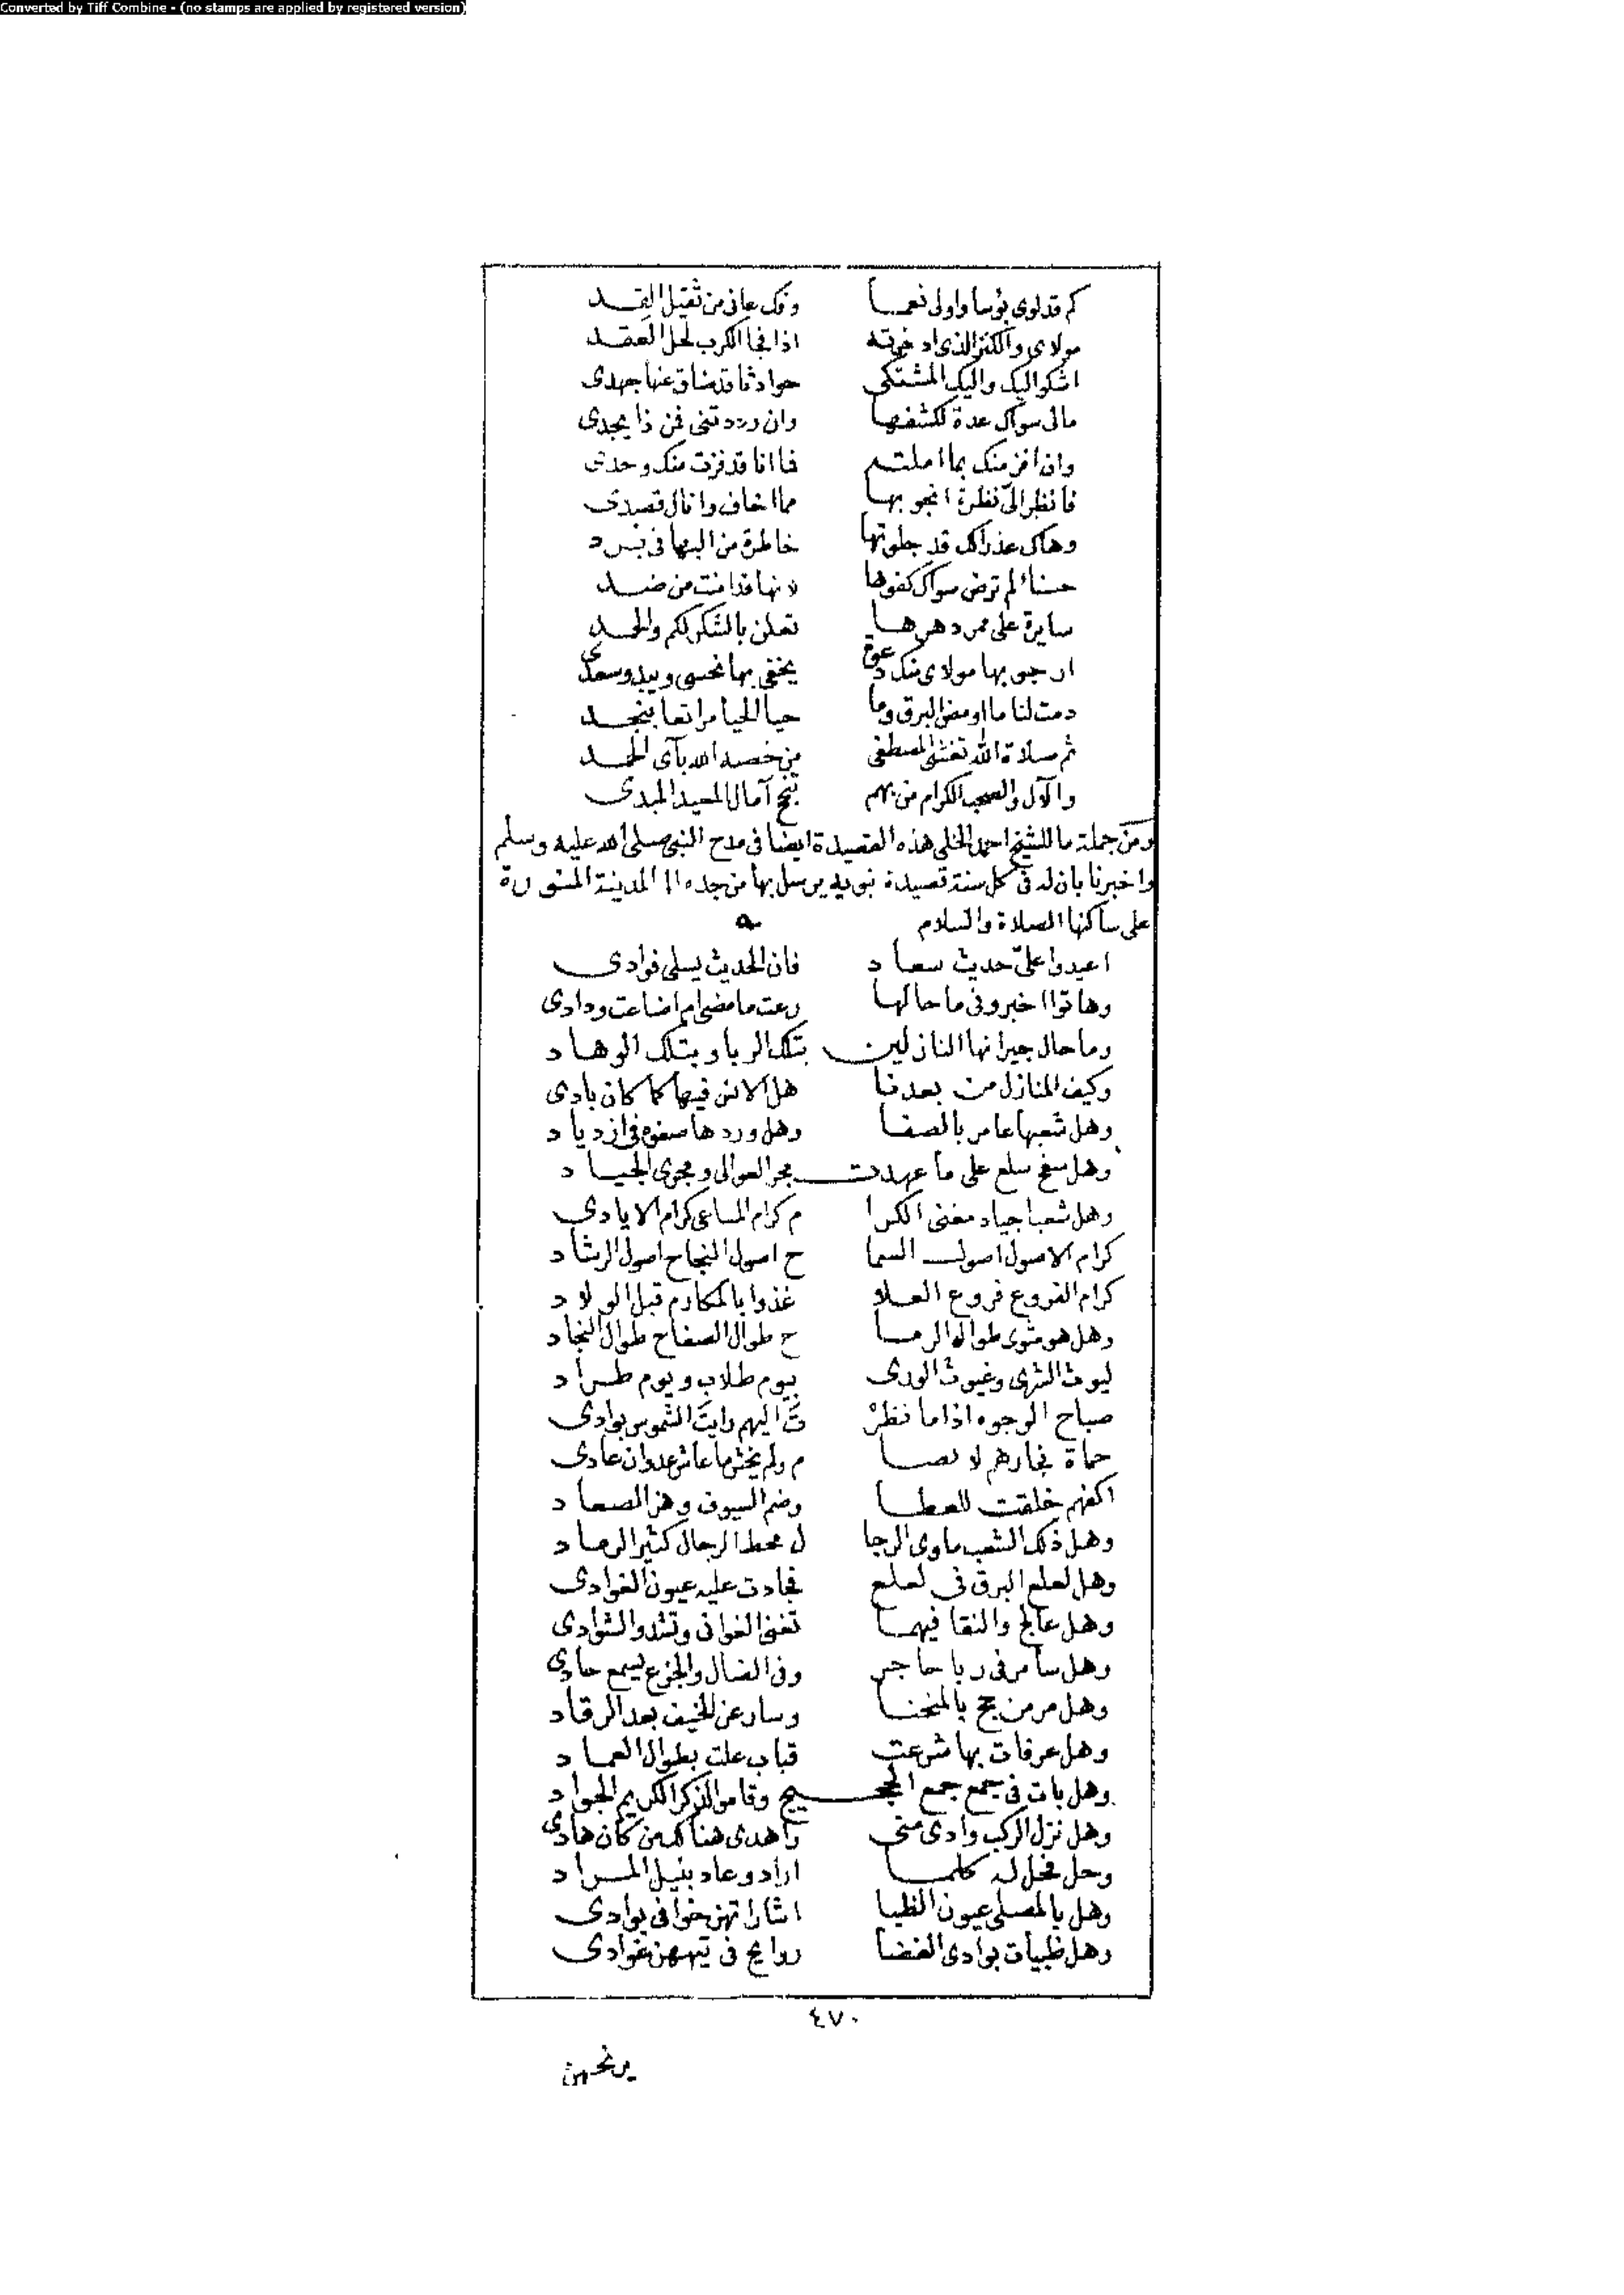 Converted by Tiff Combine - (no stamps are applied by registered version)
كم قد لوى بؤسا واولى نعما وفك عانى من ثقيل القد
مولاى والكنز الذى ادخرته اذا فجا الكرب لحل العقد
اشكو اليك واليك المشتكى حوادثا قد ضاق عنها جهدى
مالى سواك عدة لكشفها وان رددتنى فمن ذا يجدى
وان افز منك بما املته فما انا قد فزت منك وحدى
فانظر الىّ نظرة انجو بها مما اخاف وانال قصدى
وهاك عذراء لك قد جلوتها خاطرة من البها فى برد
حسناء لم ترض سواك كفوها لانها قد امنت من ضد
سايرة على ممر دهرها تعلن بالشكر لكم والحمد
ارجو بها مولاى منك دعوة يخفى بها نحسى ويبدو سعدى
دمت لنا ما اومض البرق وما حيا الحيا مراتعا بنجد
ثم صلاة الله تغشى المصطفى من خصه الله بآى الحمد
والآل والصحب الكرام من بهم نجح آمال المعيد المبدى
ومن جملة ما للشيخ احمد الخلى هذه القصيدة ايضا فى مدح النبى صلى الله عليه وسلم
واخبرنا بان له فى كل سنة قصيدة نبويه يرسل بها من جده الى المدينة المنورة
على ساكنها الصلاة والسلام
اعيدوا علىّ حديث سعاد فان الحديث يسلى فوادى
وهاتوا اخبرونى ما حالها رعت ما مضى ام اضاعت ودادى
وما حال جيرانها النازلين بتلك الربا وبتلك الوهاد
وكيف المنازل من بعدنا هل الانس فيها كما كان بادى
وهل شعبها عامر بالصفا وهل وردها صفوه فى ازدياد
وهل سفح سلع على ما عهدت مجر العوالى ومجرى الجياد
وهل شعب اجياد مغنى الكرا م كرام المساعى كرام الايادى
كرام الاصول اصول السما ح اصول النجاح اصول الرشاد
كرام الفروع فروع العلا غذوا بالمكارم قبل الولاد
وهل هو مثوى طوال الرما ح طوال الصفاح طوال النجاد
ليوث الشرى وغيوث الورى بيوم طلاب ويوم طراد
صباح الوجوه اذا ما نظرْ تَ اليهم رايتَ الشموس بوادى
حماة فجارهم لا يصا م ولم يخش ما عاش عدوان عادى
اكفهم خلقت للعطا وضم السيوف وهز الصعاد
وهل ذلك الشعب ماوى الرجا ل محط الرحال كثير الرماد
وهل لعلع البرق فى لعلع فجادت عليه عيون الغوادى
وهل عالج والنقا فيهما تغنى الغوانى وتشدو الشوادى
وهل سامر فى ربا حاجر وفى الضال والجزع يسمع حادى
وهل مر من حج بالمنحنا وسار عن الخيف بعد الرقاد
وهل عرفات بها شرعت قباب علت بطوال العماد
وهل بات فى جمع جمع الحجيج وقاموا لذكر الكريم الجواد
وهل نزل الركب وادى منى واهدى هناك من كان هادى
وحل فحل له كلما اراد وعاد بنيل المراد
وهل بالمصلى عيون الظبا اشاراتهن خوافى بوادى
وهل ظبيات بوادى الغضا روايح فى تيههن غوادى
٤٧٠